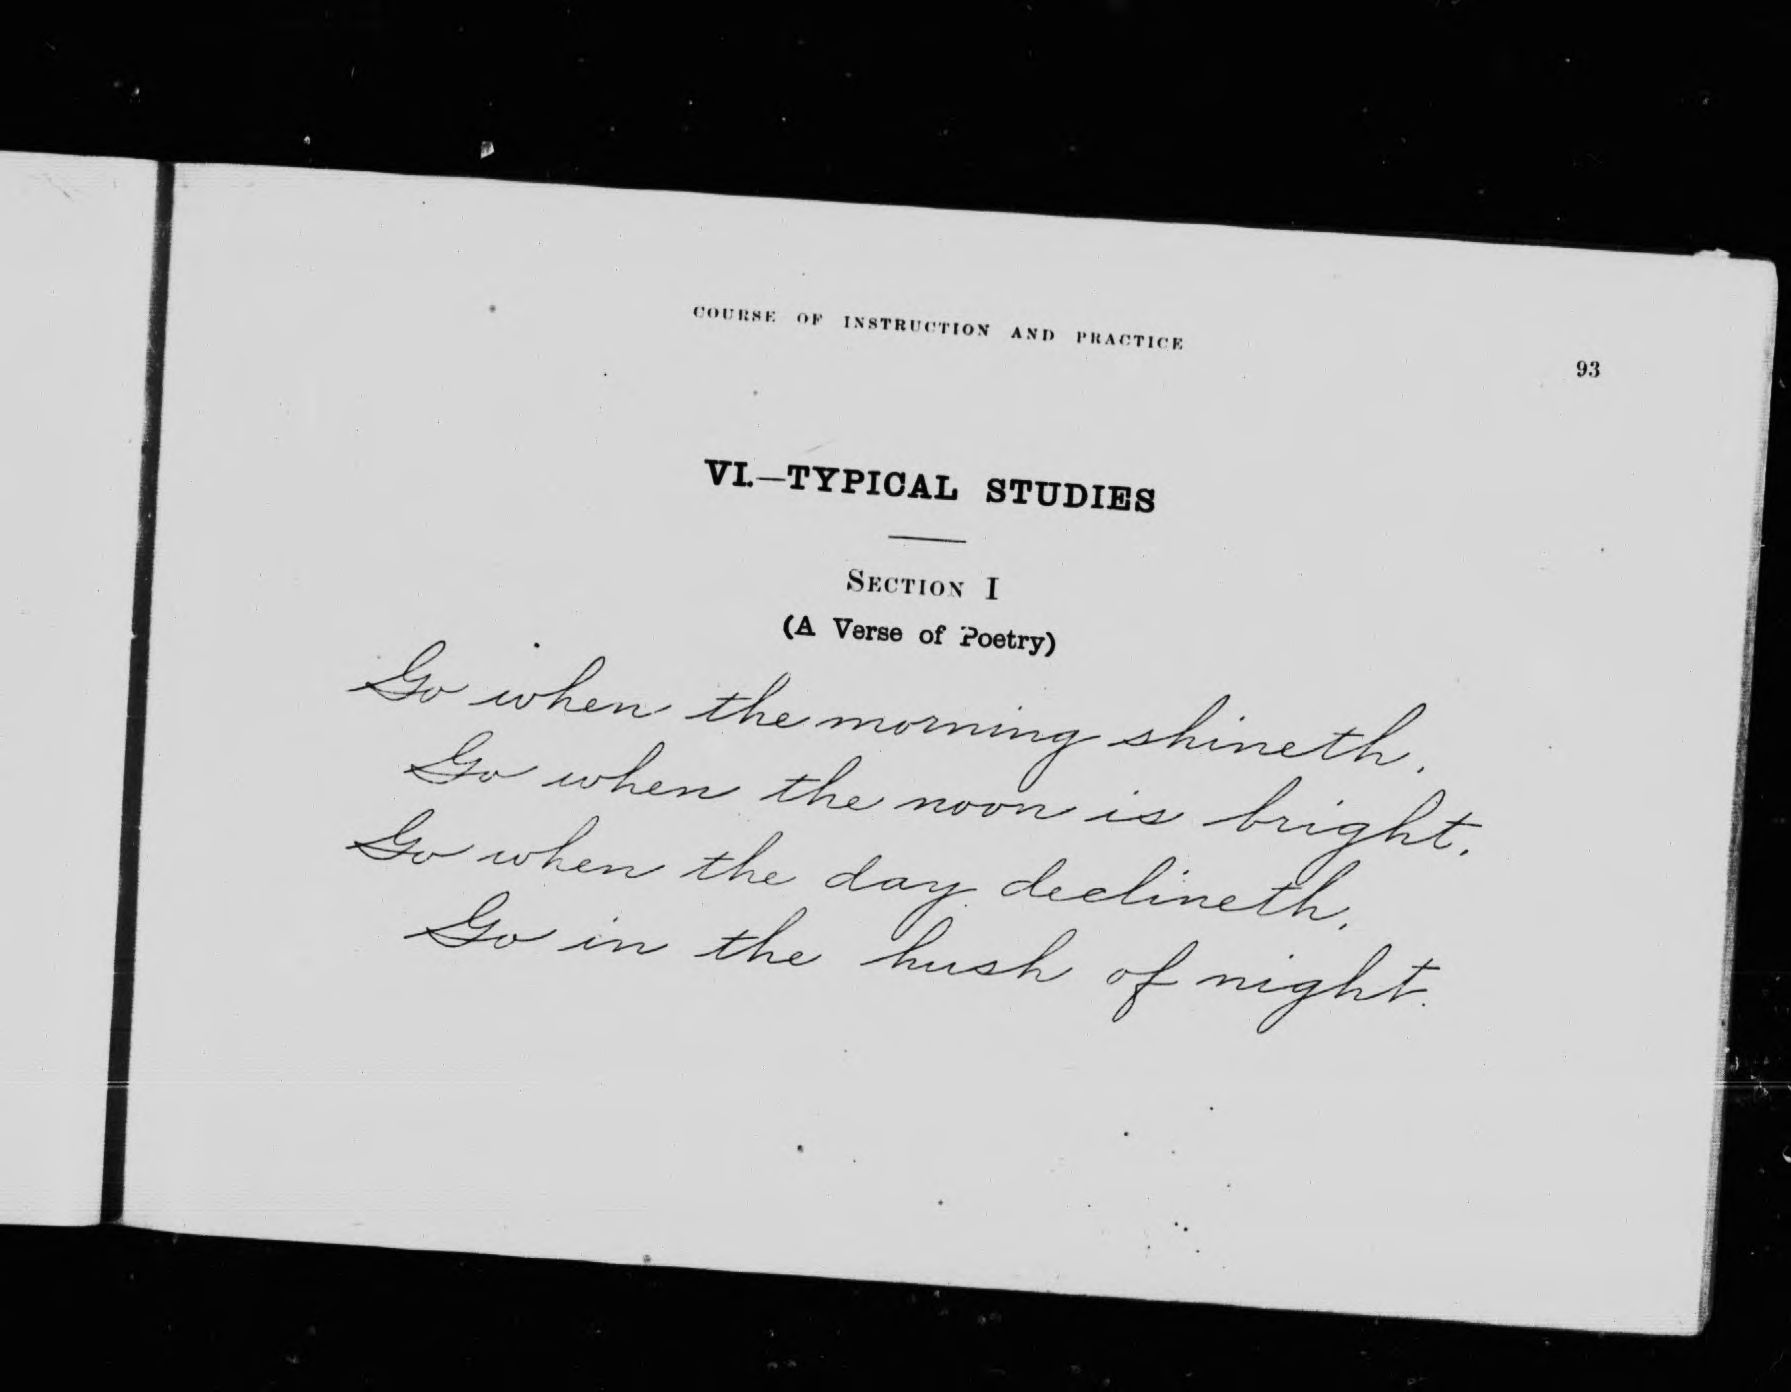 COURSE OF INSTRUCTION AND PRACTICE
93
VI.—TYPICAL STUDIES
SECTION I
(A Verse of Poetry)
Go when the morning shineth,
Go when the noon is bright,
Go when the day declineth,
Go in the hush of night.